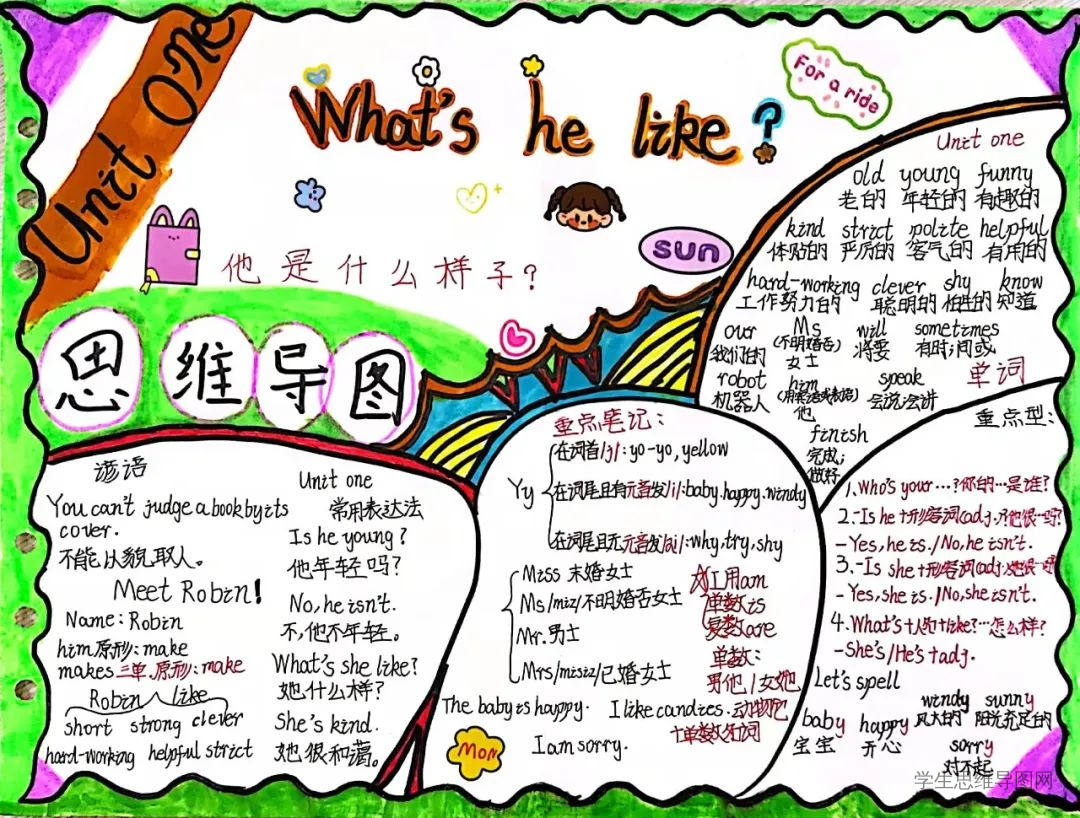 Unit One
What's he like?
For a ride
sun
他是什么样子?
思维导图
Unit one
old young funny
老的 年轻的 有趣的
kind strict polite helpful
体贴的 严厉的 客气的 有用的
hard-working clever shy know
工作努力的 聪明的 怕生的 知道
our Ms will sometimes
我们的 (不明婚否)女士 将要 有时;间或
robot him speak
机器人 他 会说;会讲
单词
finish
完成;
做好
谚语
You can't judge a book by its
cover.
不能以貌取人。
Meet Robin!
Name: Robin
him 原形: make
makes 三单.原形: make
Robin like
short strong clever
hard-working helpful strict
Unit one
常用表达法
Is he young?
他年轻吗?
No, he isn't.
不,他不年轻。
What's she like?
她什么样?
She's kind.
她很和蔼。
重点笔记:
Yy
在词首/j/: yo-yo, yellow
在词尾且有元音发/i/: baby.happy.windy
在词尾且无元音发/ai/: why, try, shy
Miss 未婚女士
Ms/miz/不明婚否女士
Mr. 男士
Mrs/misiz/已婚女士
I用am
单数is
复数are
单数:
男他/女她
动物它
+单数名词
The baby is happy. I like candies.
I am sorry.
Mon
重点型:
1. Who's your…? 你的…是谁?
2. -Is he+形容词(adj.)? 他很…吗?
- Yes, he is./No, he isn't.
3. -Is she+形容词(adj.
- Yes, she is./No, she isn't.
4. What's+人物+like? …怎么样?
- She's/He's+adj.
Let's spell
baby happy windy sunny
宝宝 开心 风大的 阳光充足的
sorry
对不起
学生思维导图网